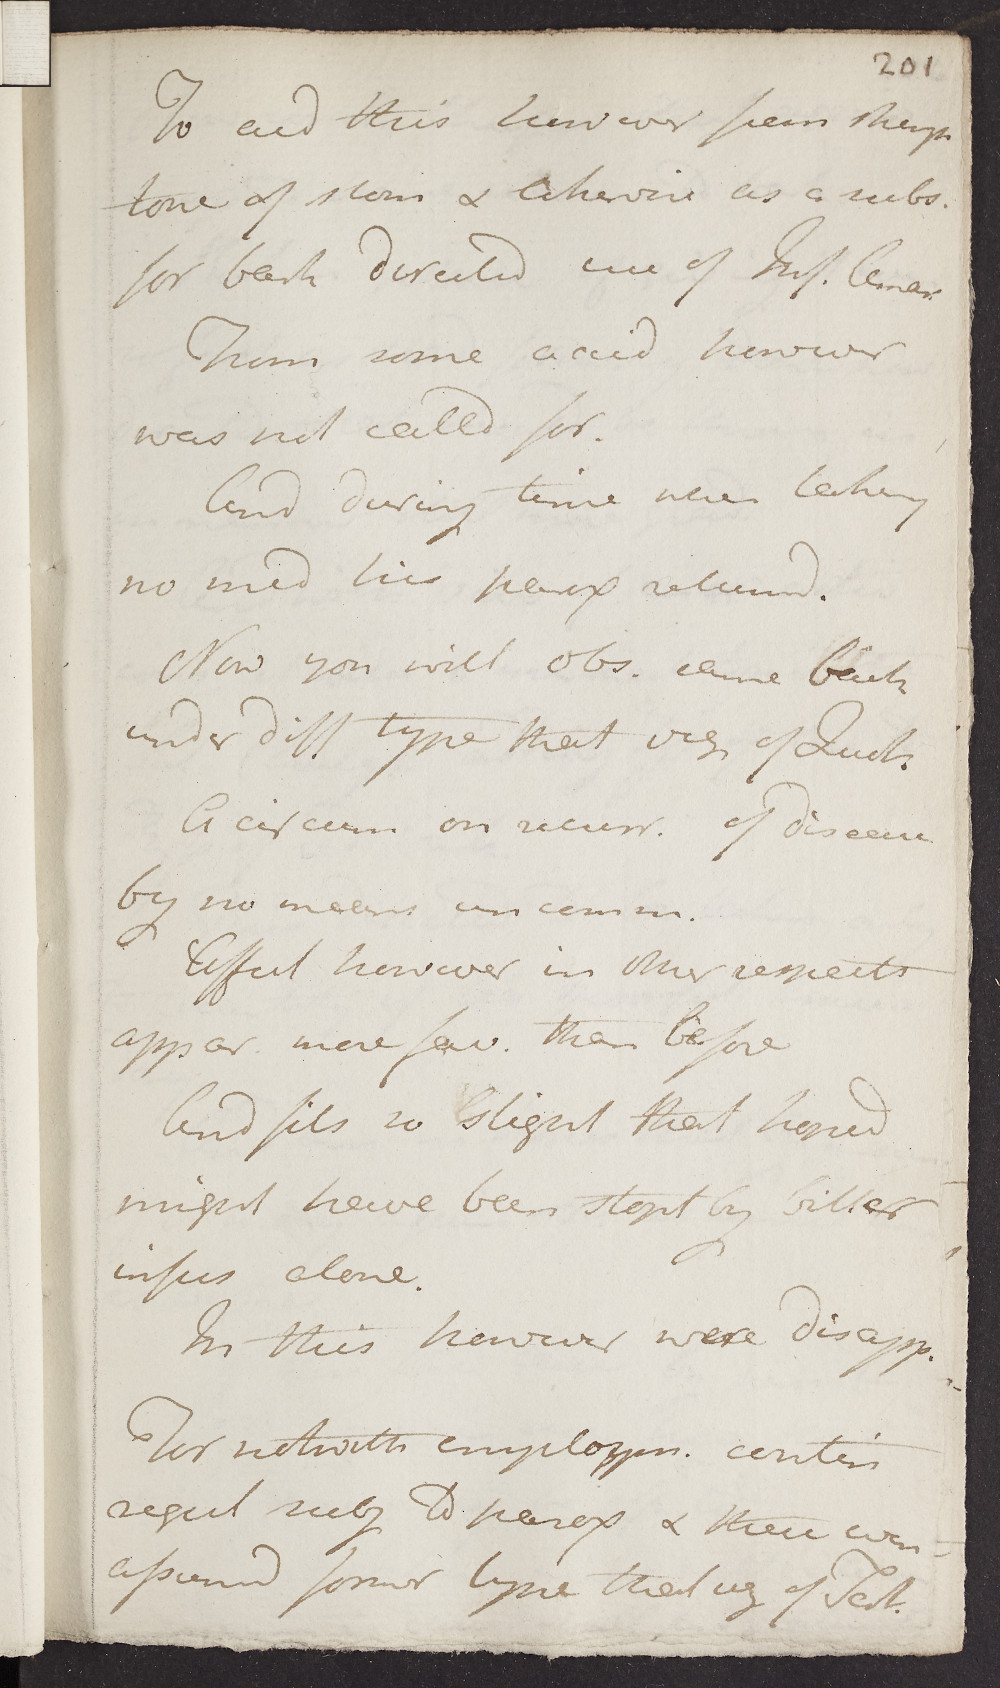 201
To aid this however from streng
tone of stom & likewise as a subs.
for bark directed use of Inf. Amar.
From some accid however
was not called for.
And during time was taking
no med his parox returnd.
Now you will obs. came back
under diff type that viz of Quot.
A circum on recurr. of disease
by no means uncomm.
Effect however in other respects
appear more fav. than before
And fits so slight that hoped
might have been stopt by bitter
infus alone.
In this however were disapp.
For notwith employm. contin
regul subj to parox & these even
assumd former type that viz of Tert.